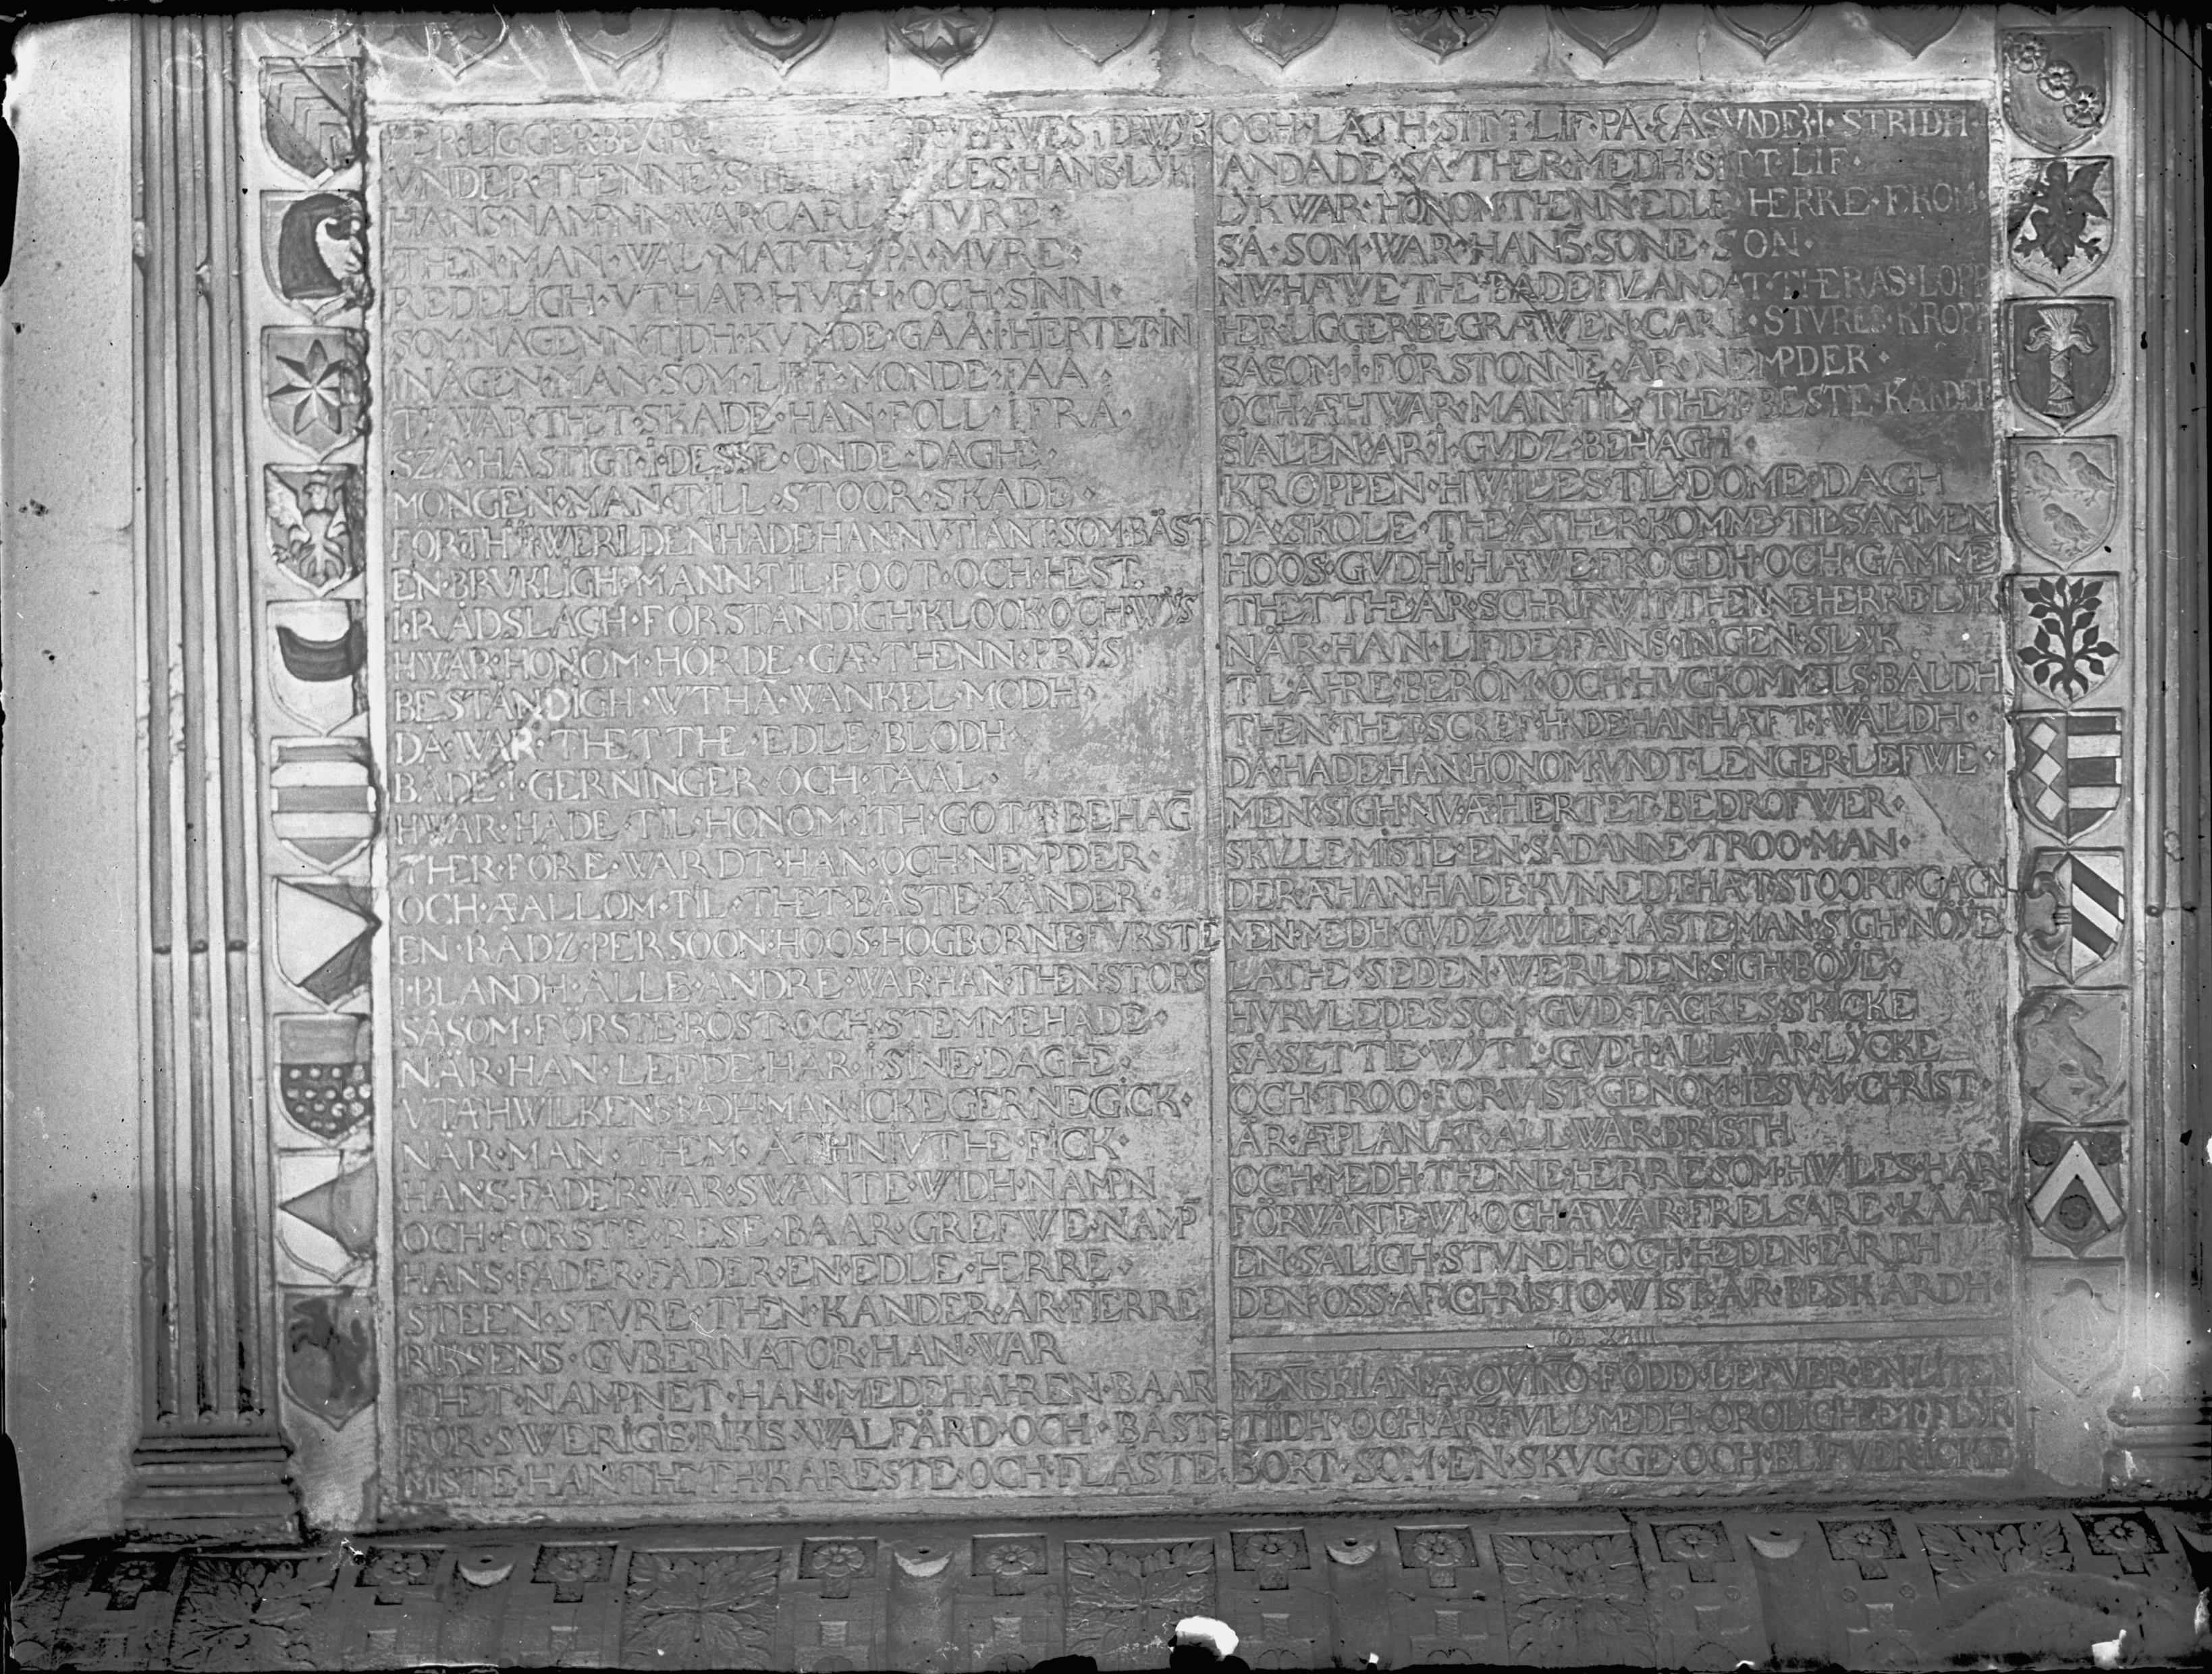 HER·LIGGER·BEGR
VNDER·THENNE·STE LES·HANS·LYK
HANS·NAMPNN·WAR·CARL·STVRE·
THEN·MAN·WAL·MATTE·PA·MVRE·
REDELIGH·VTHAF·HVGH·OCH·SINN·
SOM·NAGENN·TIDH·KVNDE·GÅÅ·I·HIERTET·IN
I·NÅGEN·MAN·SOM·LIFF·MONDE·FAA·
TY·WAR·THET·SKADE·HAN·FOLL·IFRA·
SZÅ·HASTIGT·I·DESSE·ONDE·DAGHE·
MONGEN·MAN·TILL·STOOR·SKADE·
FÖR·TH WERLDEN·HADE·HAN·NV·TIÄNT·SOM·BÄST
EN·BRVKLIGH·MANN·TIL·FOOT·OCH·HEST·
I·RÅDSLAGH·FÖRSTÅNDIGH·KLOOK·OCH·WYS
HWAR·HONOM·HÖRDE·GÆ·THENN·PRYS
BESTÄNDIGH·WTHĀ·WANKEL·MODH·
DÅ·WAR·THET·THE·EDLE·BLODH
BÅDE·I·GERNINGER·OCH·TAAL·
HWAR·HADE·TIL·HONOM·ITH·GOTT·BEHAG
THER·FÖRE·WARDT·HAN·OCH·NEMPDER·
OCH·Æ·ALLOM·TIL·THET·BÄSTE·KÄNDER·
EN·RÅDZ·PERSOON·HOOS·HÖGBORNE·FVRSTE
I·BLANDH·ALLE·ANDRE·WAR·HAN·THEN·STORS
SÅSOM·FÖRSTE·RÖST·OCH·STEMME·HADE·
NÄR·HAN·LEFDE·HÄR·I·SINE·DAGHE·
VTÆ·HWILKENS·RÅDH·MAN·ICKE·GERNE·GICK·
NÄR·MAN·THEM·ÅTHNIVTHE·FICK·
HANS·FADER·WAR·SWANTE·WIDH·NAMPN
OCH·FÖRSTE·RESE·BAAR·GREFWE·NAMP
HANS·FADER·FADER·EN·EDLE·HERRE·
STEEN·STVRE·THEN·KÄNDER·ÄR·FIERRE
RIKSENS·GVBERNATOR·HAN·WAR
THET·NAMPNET·HAN·MEDH·ÄHREN·BAAR
FÖR·SWERIGIS·RIKIS·WALFÄRD·OCH·BÄSTE
MISTE·HAN·THETH·KÄRESTE·OCH·FLÄSTE
OCH·LÄTH·SITT·LIF·PÅ· ÅSVNDEN·I·STRIDH·
ÄNDADE·SÅ·THER·MEDH·SITT·LIF·
LYK·WAR·HONOM·THENN·EDLE·HERRE·FROM·
SÅ·SOM·WAR·HANS·SONE·SON·
NV·HAWE·THE·BÅDE·FVLÄNDAT·THERAS·LOPP
HER·LIGGER·BEGRAWEN·CARL·STVRES·KROPP
SÅSOM·I·FÖRSTONNE·ÄR·NEMPDER·
OCH·Æ·HWAR·MAN·TIL·THET·BESTE·KÄNDER
SIALEN·ÄR·I·GVDZ·BEHAGH·
KROPPEN·HWILES·TIL·DOME·DAGH
DÅ·SKOLE·THE·ÅTHER·KOMME·TILSAMMEN
HOOS·GVDH·I·HÆWE·FRÖGDH·OCH·GAMMĒ
THET·THE·ÄR·SCHRIFWIT·THENNE·HERRE·LYK
NÄR·HAN·LIFDE·FANS·INGEN·SLYK
TIL·ÄHRE·BERÖM·OCH·HVGKOMMELS·BÅLDH
THEN·THET·SCREF·HADE·HAN·HAFT·I·WÅLDH·
DÅ·HADE·HAN·HONOM·VNDT·LENGER·LEFWE·
MEN·SIGH·NV·Æ·HIERTET·BEDRÖFWER·
SKVLLE·MISTE·EN·SÅDANNE·TROO·MAN·
DER·Æ·HAN·HADE·KVNNE·DTHÆT·STOORT·GAGN
MEN·MEDH·GVDZ·WILIE·MÅSTE·MAN·SIGH·NÖYE
LÄTHE·SEDEN·WERLDEN·SIGH·BÖYE·
HVRVLEDES·SOM·GVD·TÄCKES·SKICKE
SÅ·SETTIE·WY·TIL·GVDH·ALL·WÅR·LYCKE
OCH·TROO·FÖRWIST·GENOM·IESVM·CHRIST·
ÄR·ÆPLANAT·ALL·WÅR·BRISTH
OCH·MEDH·THENNE·HERRE·SOM·HWILES·HÄR
FÖRWÄNTE·WI·OCH·Æ·WÅR·FRELSARE·KÄÄR
EN·SALIGH·STVNDH·OCH·HEDEN·FÄRDH
DEN·OSS·AF·CHRISTO·WIST·ÄR·BESKÄRDH·
MENSKIAN·Æ·QVINO·FÖDD·LEFVER·EN·LITEN
TIIDH·OCH·ÄR·FVLL·MEDH·OROLIGHET·FLYR
BORT·SOM·EN·SKVGGE·OCH·BLIFVER·ICKE